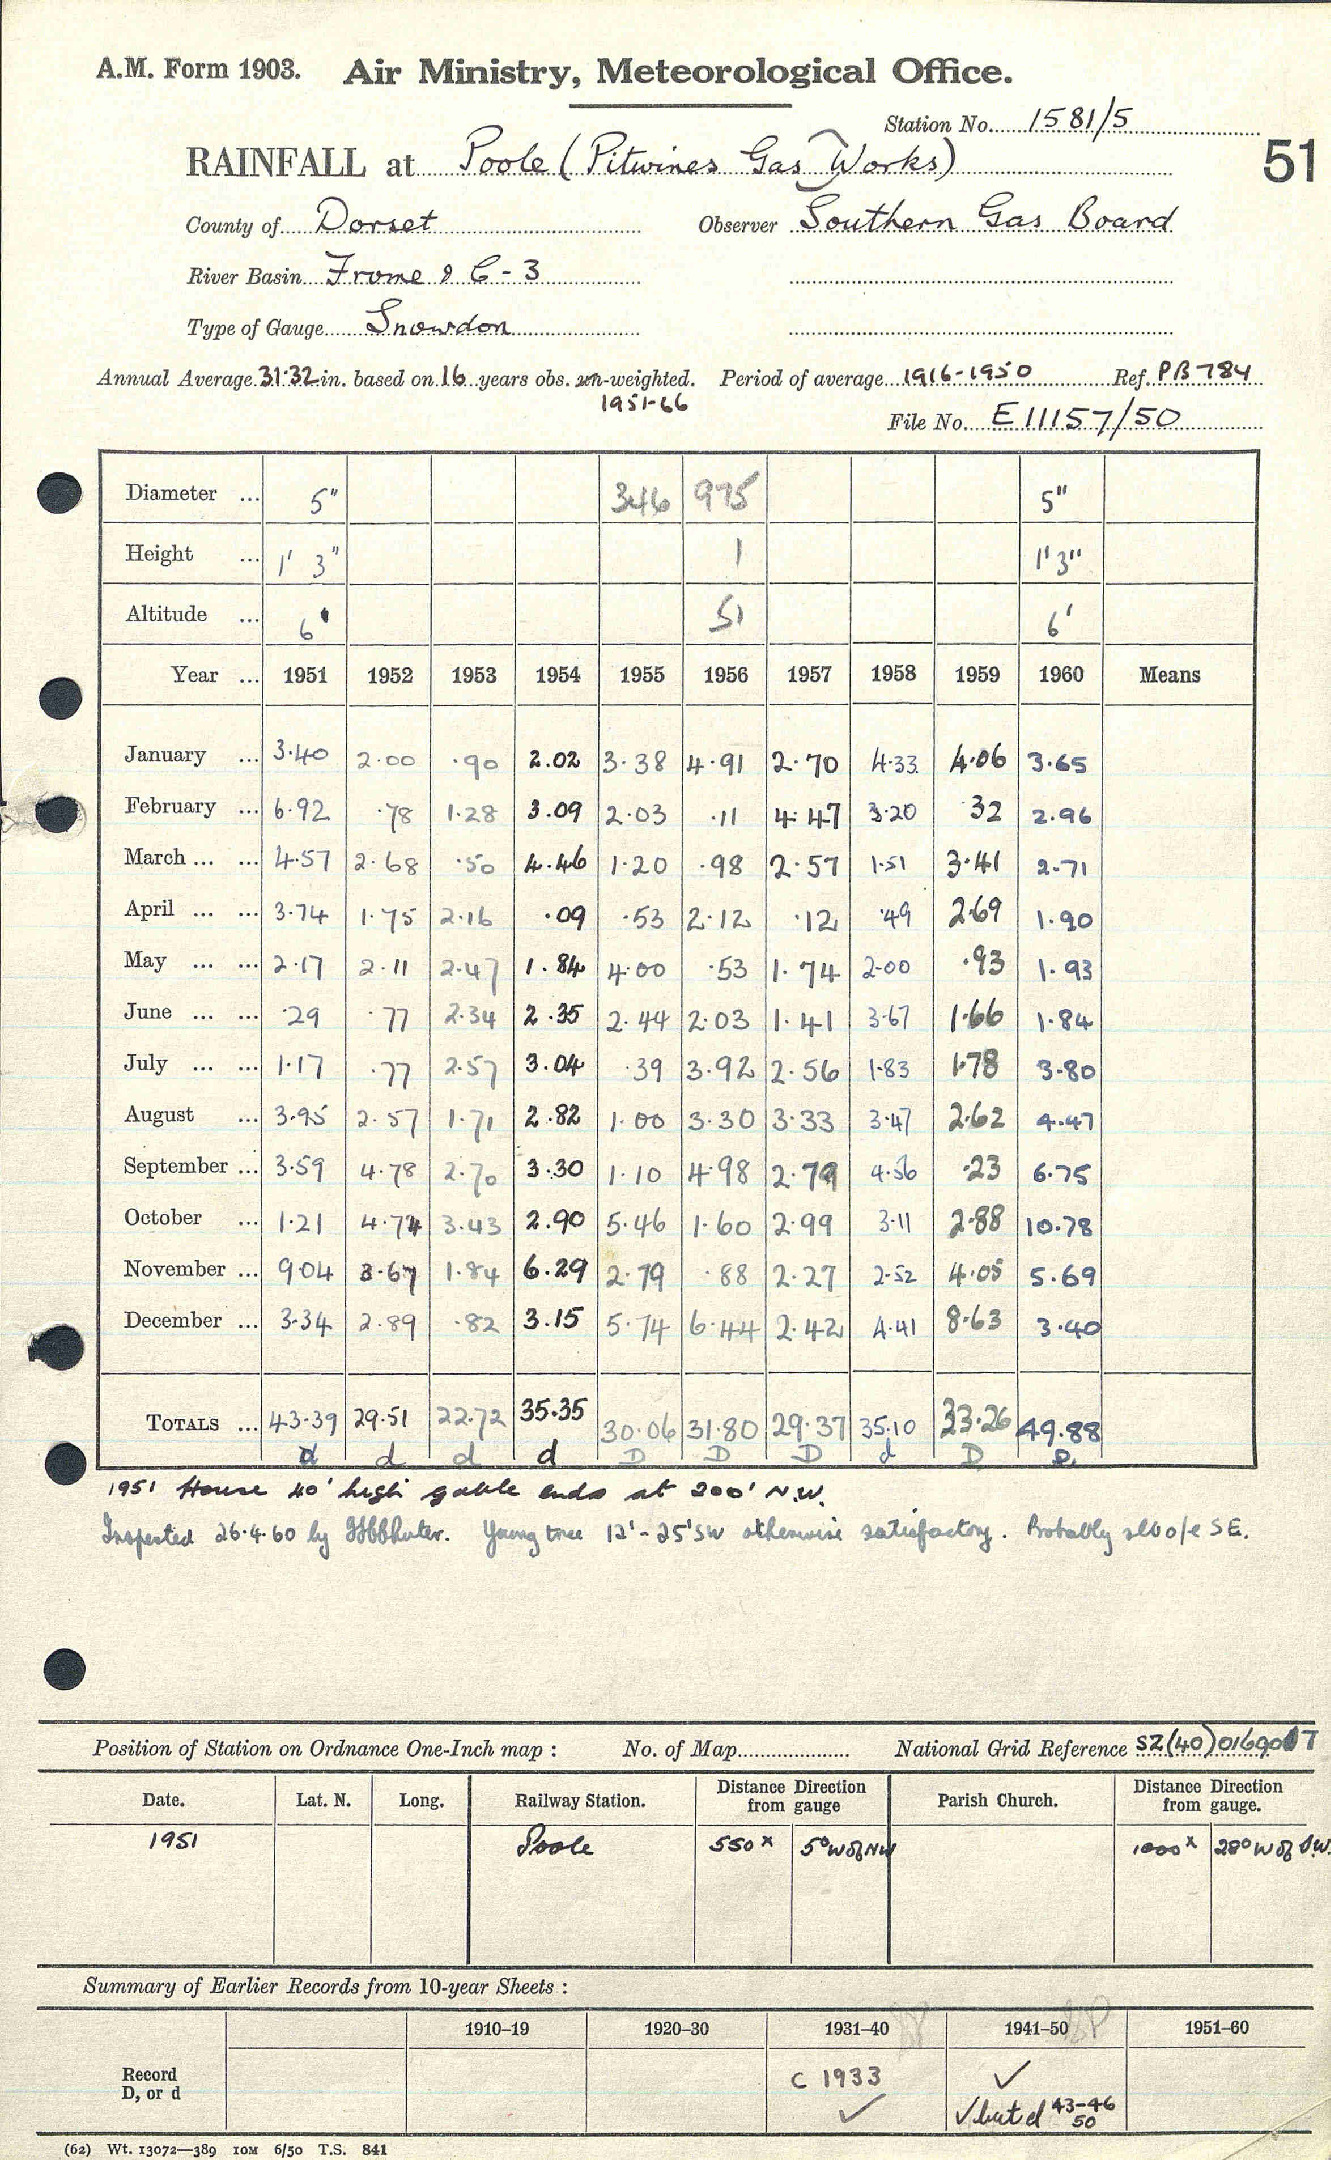 A.M. Form 1903. Air Ministry, Meteorological Office.
Station No. 1581/5
RAINFALL at Poole (Pitwines Gas Works)
51
County of Dorset Observer Southern Gas Board
River Basin Frome & C-3
Type of Gauge Snowdon
Annual Average 31.32 in. based on 16 years obs. un-weighted. Period of average 1916-1950 Ref. PB784
1951-66
File No. E11157/50
Diameter ... 5" 346 975 5"
Height ... 1' 3" 1 1'3"
Altitude ... 6' 51 6'
Year ... 1951 1952 1953 1954 1955 1956 1957 1958 1959 1960 Means
January ... 3.40 2.00 .90 2.02 3.38 4.91 2.70 4.33 4.06 3.65
February ... 6.92 .78 1.28 3.09 2.03 .11 4.47 3.20 .32 2.96
March ... ... 4.57 2.68 .50 4.46 1.20 .98 2.57 1.51 3.41 2.71
April ... ... 3.74 1.75 2.16 .09 .53 2.12 .12 .49 2.69 1.90
May ... ... 2.17 2.11 2.47 1.84 4.00 .53 1.74 2.00 .93 1.93
June ... ... .29 .77 2.34 2.35 2.44 2.03 1.41 3.67 1.66 1.84
July ... ... 1.17 .77 2.57 3.04 .39 3.92 2.56 1.83 1.78 3.80
August ... 3.95 2.57 1.71 2.82 1.00 3.30 3.33 3.47 2.62 4.47
September ... 3.59 4.78 2.70 3.30 1.10 4.98 2.79 4.56 .23 6.75
October ... 1.21 4.74 3.43 2.90 5.46 1.60 2.99 3.11 2.88 10.78
November ... 9.04 3.67 1.84 6.29 2.79 .88 2.27 2.52 4.05 5.69
December ... 3.34 2.89 .82 3.15 5.74 6.44 2.42 4.41 8.63 3.40
TOTALS ... 43.39 29.51 22.72 35.35 30.06 31.80 29.37 35.10 33.26 49.88
d d d d D D D d D D
1951 House 40' high gable ends at 200' N.W.
Inspected 26.4.60 by Young tree 12'-25' SW otherwise satisfactory. Probably sl o/e SE.
Position of Station on Ordnance One-Inch map : No. of Map National Grid Reference SZ(40)016907
Date. Lat. N. Long. Railway Station. Distance from gauge Direction Parish Church. Distance from gauge. Direction
1951 Poole 550x 5° W of NW 1000x 28° W of S.W.
Summary of Earlier Records from 10-year Sheets :
1910–19 1920–30 1931–40 1941–50 1951–60
Record D, or d C 1933 ✓ ✓
✓ but d 43-46 50
(62) Wt. 13072—389 10M 6/50 T.S. 841